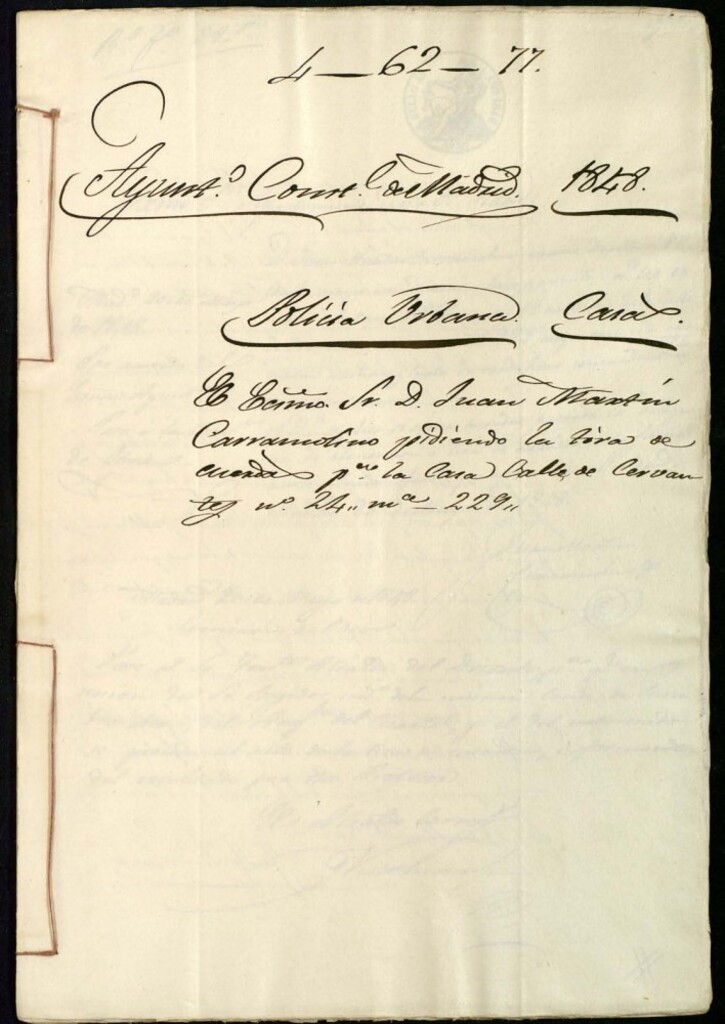 4 – 62 – 77.
Ayunt.º Const.l de Madrid. 1848.
Policia Urbana. Casas.
El Exmo. Sr. D. Juan Martin
Carramolino pidiendo la tira de
cuerdas p.ª la Casa Calle de Cervan
tes nº. 24,, m.ª – 229,,